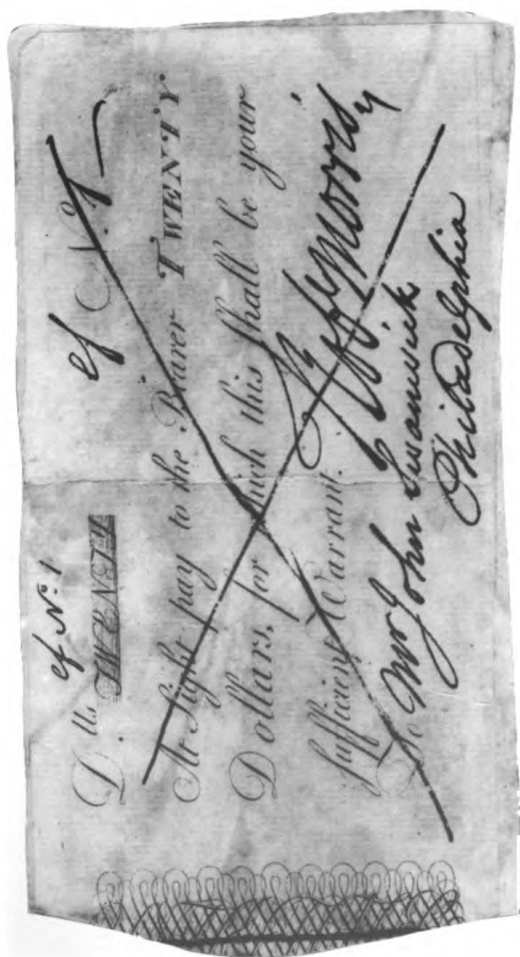 ef N.º 1 ef N.º 1
D.lls TWENTY
At Sight pay to the Bearer TWENTY
Dollars, for which this shall be your
sufficient Warrant.
Rob Morris
To Mr John Swanwick
Philadelphia